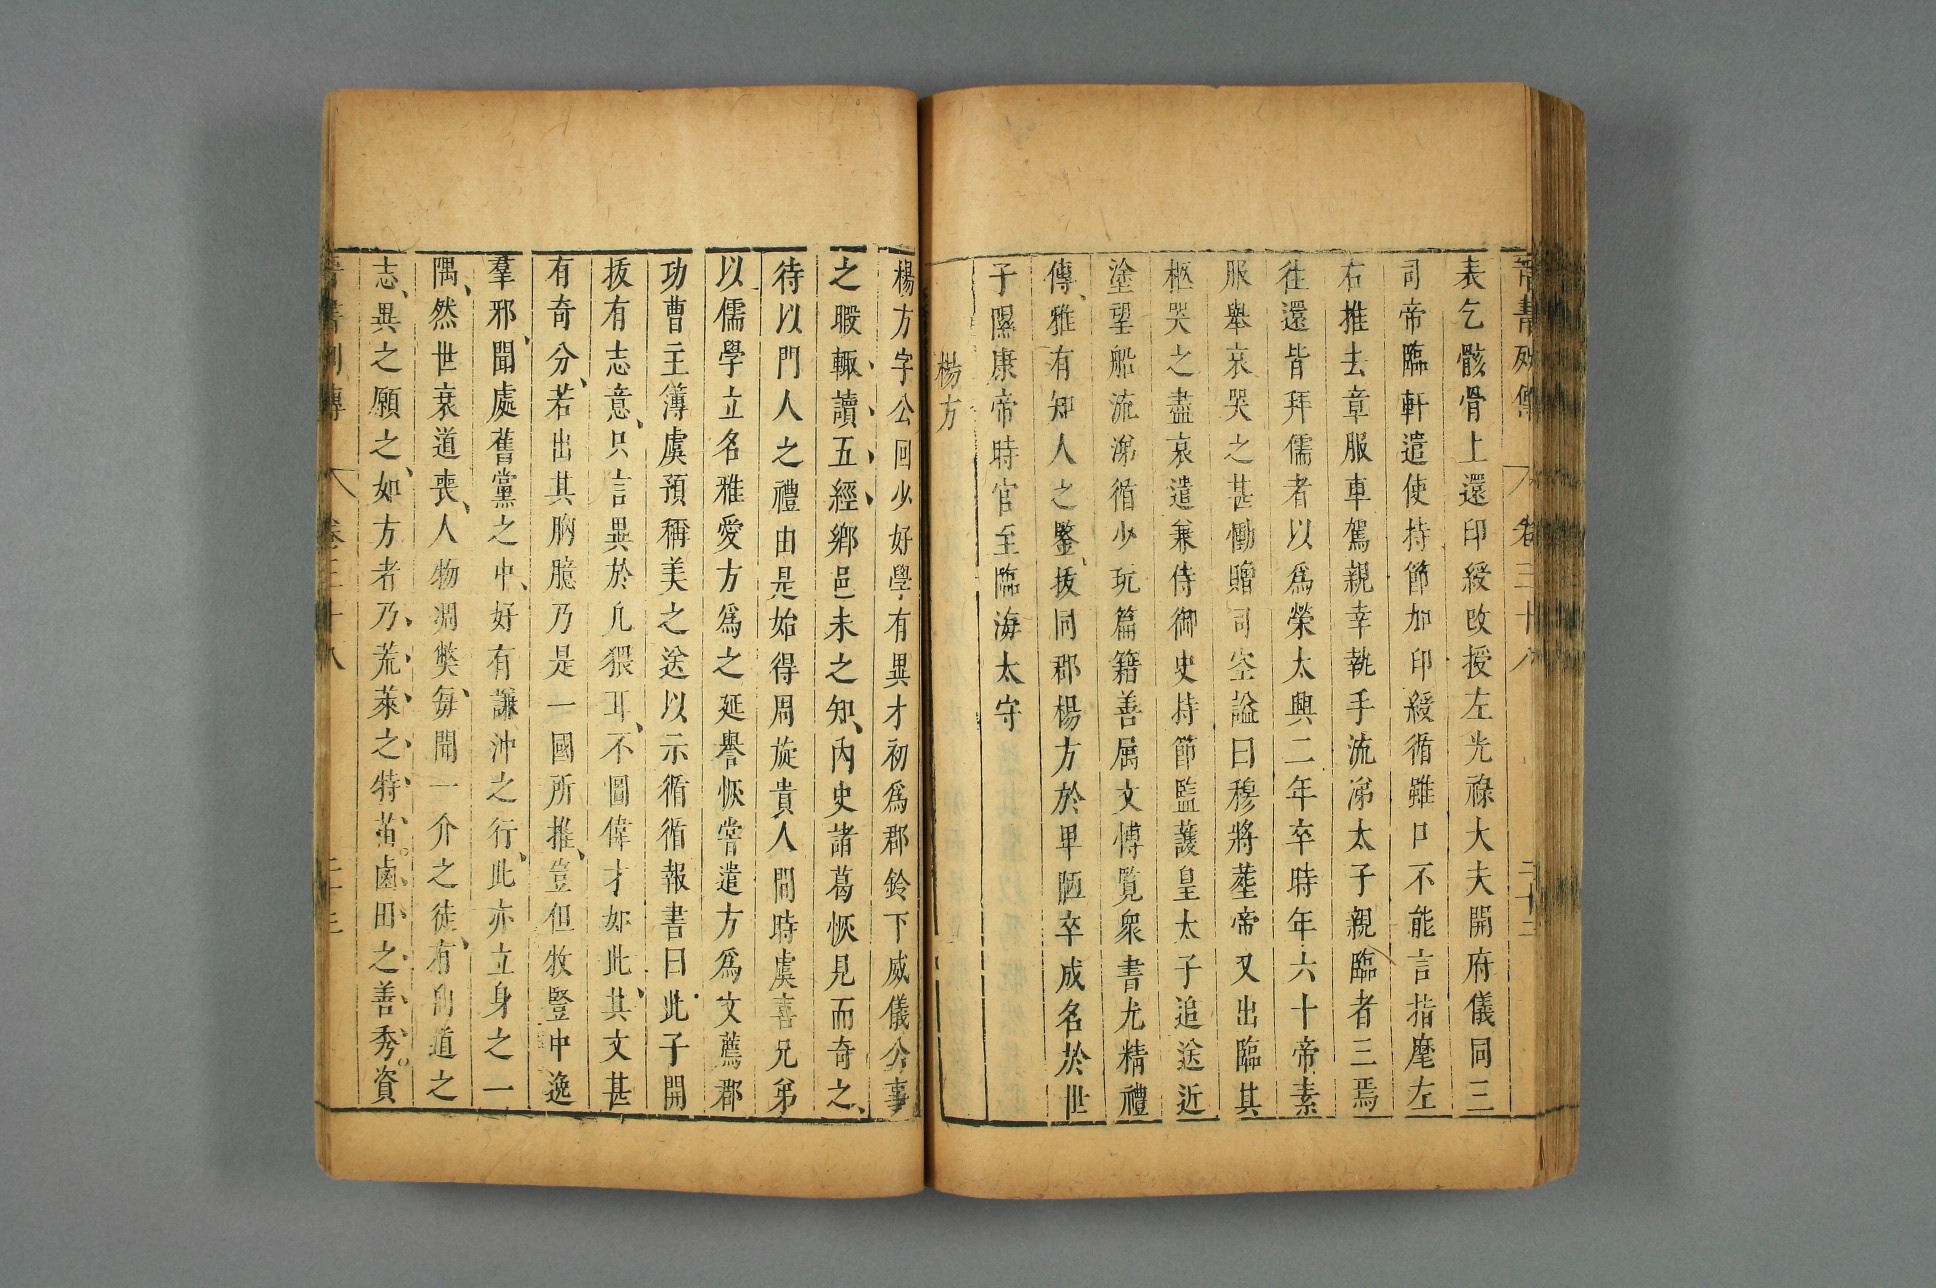 晉書列傳 卷三十八 二十三
表乞骸骨上還印綬改授左光祿大夫開府儀同三
司帝臨軒遣使持節加印綬循雖口不能言指麾左
右推去章服車駕親幸執手流涕太子親臨者三焉
往還皆拜儒者以爲榮太興二年卒時年六十帝素
服舉哀哭之甚慟贈司空謚曰穆將葬帝又出臨其
柩哭之盡哀遣兼侍御史持節監護皇太子追送近
塗望船流涕循少玩篇籍善屬文博覽衆書尤精禮
傳雅有知人之鑒拔同郡楊方於卑陋卒成名於世
子隰康帝時官至臨海太守
楊方
楊方字公回少好學有異才初爲郡鈴下威儀公事
之暇輙讀五經鄉邑未之知內史諸葛恢見而奇之
待以門人之禮由是始得周旋貴人間時虞喜兄弟
以儒學立名雅愛方爲之延譽恢嘗遣方爲文薦郡
功曹主簿虞預稱美之送以示循循報書曰此子開
拔有志意只言異於凡猥耳不圖偉才如此其文甚
有奇分若出其胸臆乃是一國所推豈但牧豎中逸
羣邪聞處舊黨之中好有謙沖之行此亦立身之一
隅然世衰道喪人物凋獘每聞一介之徒有向道之
志異之願之如方者乃荒萊之特苗鹵田之善秀資
晉書列傳 卷三十八 二十三